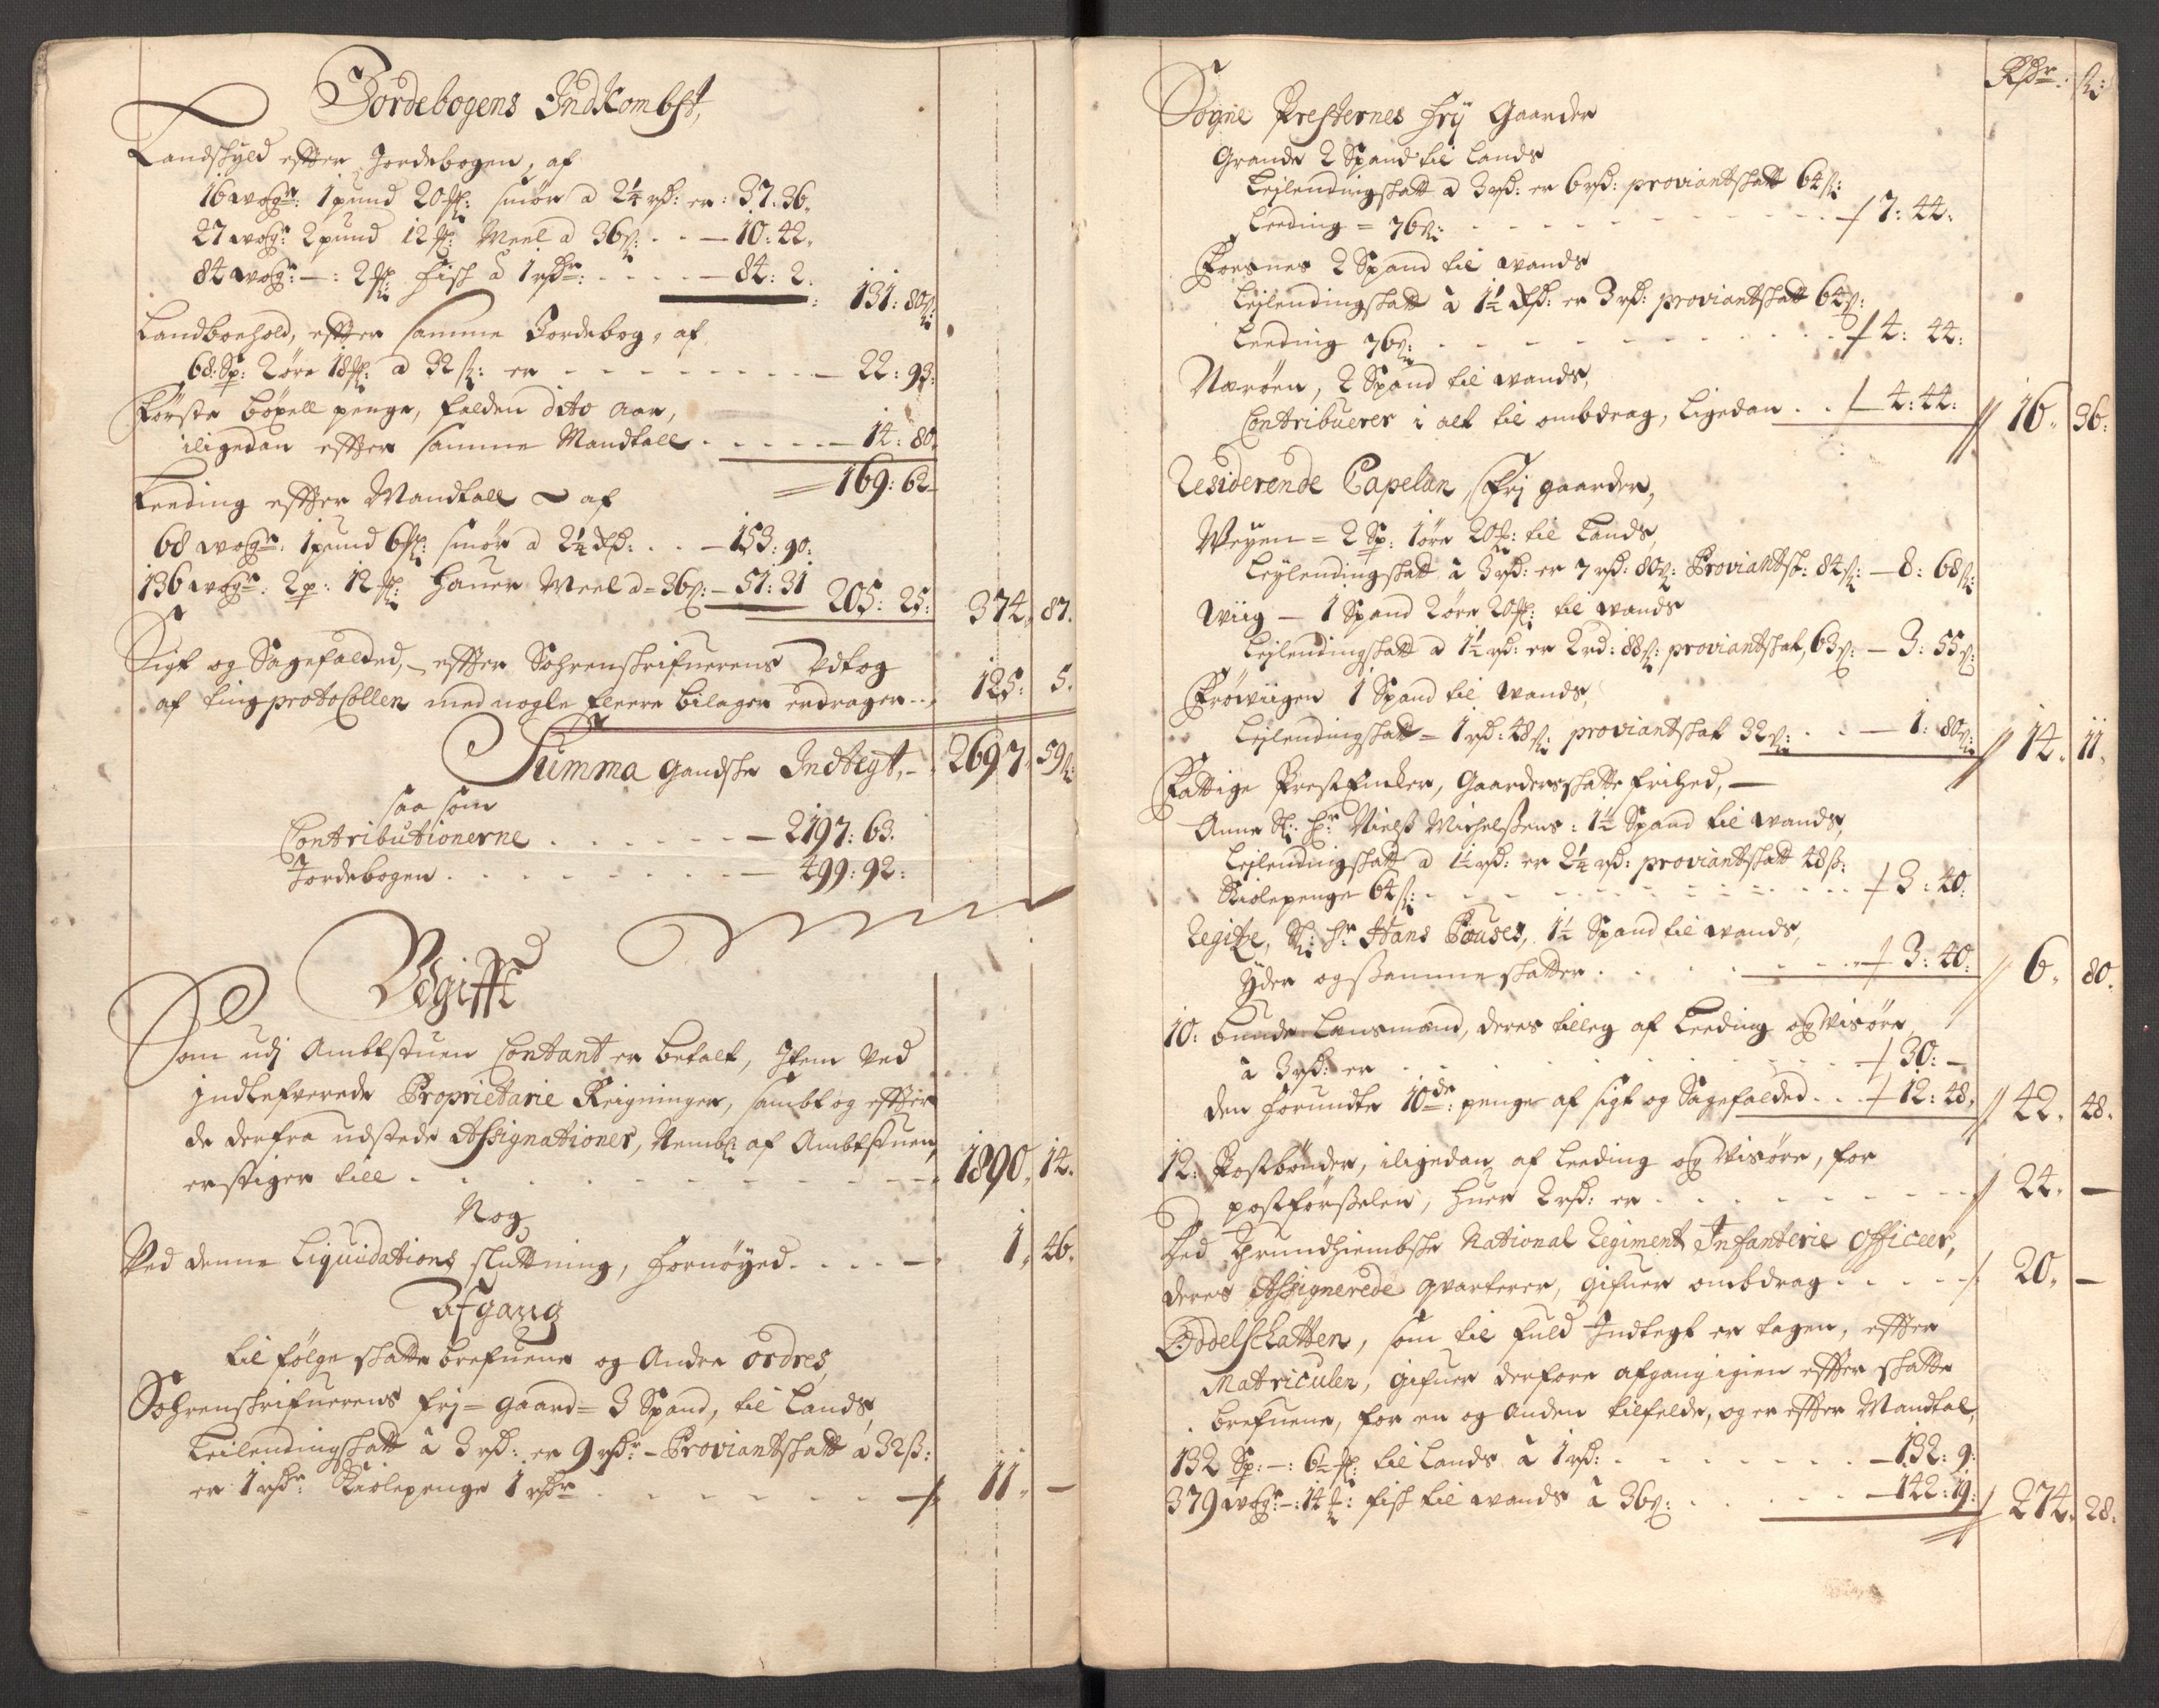 Jordebogens Indkombst,
Landschyld effter Jordebogen, af
16 wog: 1 pund 20 ℔: smör a 2¼ rd: er: 37. 36.
27 wog: 2 pund 12 ℔: Meel a 36 ß: . . — 10: 42.
84 wog: —: 2 ℔: fisk à 1 rdr: . . . . — 84: 2.
131: 80 ß:
Landboehold, effter samme Jordebog, af
68: Sp: 2 öre 18 ℔: a 32 ß: er - - - - - - - — 22: 93:
Förste böxell penge, falden dito Aar,
iligedan effter samme Mandtall . . . . . — 14: 80.
169: 62
Leeding effter Mandtall ~ af
68 wog: 1 pund 6 ℔: smör a 2¼ Rd: . . — 153: 90:
136 wog: 2 p: 12 ℔: Hauer Meel a = 36 ß: — 51: 31
205: 25: 374. 87.
Sigt og Sagefalded, — effter Sohrenskrifuerens Udtog
af tingprotocollen med nogle fleere bilager erdrager . . 125: 5.
Summa gandske Indtegt, — 2697. 59 ß:
saa som
Contributionerne . . . . . . — 2197: 63.
Jordebogen . . . . . . . . — 499: 92:
Udgifft
Som udj Ambtstuen Contant er betalt, Item ved
indlefverede Proprietarie Reigninger, sambt og effter
de derfra udstede Assignationer, Nembl: af Ambtstuen,
erstiger till . . . . . . . . . 1890. 14.
Nog
Ved denne Liquidations sluttning, fornöyed . . . . — 1. 46.
Afgang
til fölge skatte brefuene og Andre ordres,
Sohrenskrifuerens frj = gaard = 3 Spand, til Lands,
Leilendingskatt à 3 rd: er 9 rdr — Proviantskatt a 32 ß:
er 1 rdr: Kiolepenge 1 rdr . . . . . . . 11. —
Rdr: ß:
Sogne Presternes frij Gaarder
Grande 2 Spand til Lands
Leilendingskatt a 3 rd: er 6 rd: proviantskatt 64 ß:
Leeding = 76 ß: - - - - - - - 7: 44:
Foesnes 2 Spand til wands
Leilendingskatt à 1½ Rd: er 3 rd: proviantskatt 64 ß:
Leeding 76 ß: - - - - - - - 4: 44:
Næröen, 2 Spand til wands,
Contribuerer i alt til ombdrag, ligedan . . 4: 44: 16. 36:
Residerende Capelan, Frj gaarder,
Weyen = 2 Sp: 1 öre 20 ℔: til Lands,
Leylendingskatt à 3 rd: er 7 rd: 80 ß: Proviantsk: 84 ß: — 8: 68 ß:
Wiig — 1 Spand 2 öre 20 ℔: til wands
Leilendingskatt a 1½ rd: er 2 rd: 88 ß: proviantskat, 63 ß: — 3: 55 ß:
Fröwiigen 1 Spand til wands,
Leilendingskatt = 1 rd: 48 ß: proviantskat 32 ß: . . — 1: 80 ß: 14. 11.
Fattige Prest Encker, Gaarders skatte frihed, —
Anne Sl: Hr Nielß Michelßens: 1½ Spand til wands,
Leilendingskatt a 1½ rd: er 2¼ rd: proviantskatt 48 ß:
Kiolepenge 64 ß: - - - - - - - - 3: 40:
Zegitze, Sl: Hr Hans Pouses, 1½ Spand til wands,
yder og samme skatter . . . . . . 3: 40: 6. 80.
10: bunde Lensmænd, deres tilleg af Leeding og Wisöre,
à 3 rd: er . . . . . . . . . . 30: —
den forundte 10de: penge af sigt og Sagefalded . . . 12: 48. 42. 48.
12: Postbönder, iligedan af Leeding og Wisöre, for
postförselen, huer 2 rd: er - - - - - - - - 24. —
Ved Thrundhiembske National Regiment Infanterie officeer,
deres Assignerede quarterer, gifuer ombdrag . . . . . 20. —
Oddelschatten, som til fuld Indtegt er tagen, effter
Matriculen, gifuer derfore afgang igien effter skatte
brefuene, for en og Anden tilfelde, og er effter Mandtal,
132 Sp: —: 6½ ℔: til Lands à 1 rd: . . . . . . . — 132: 9:
379 wog: —: 14 ℔: fisk til wands à 36 ß: . . . . . — 142: 19: 274. 28: